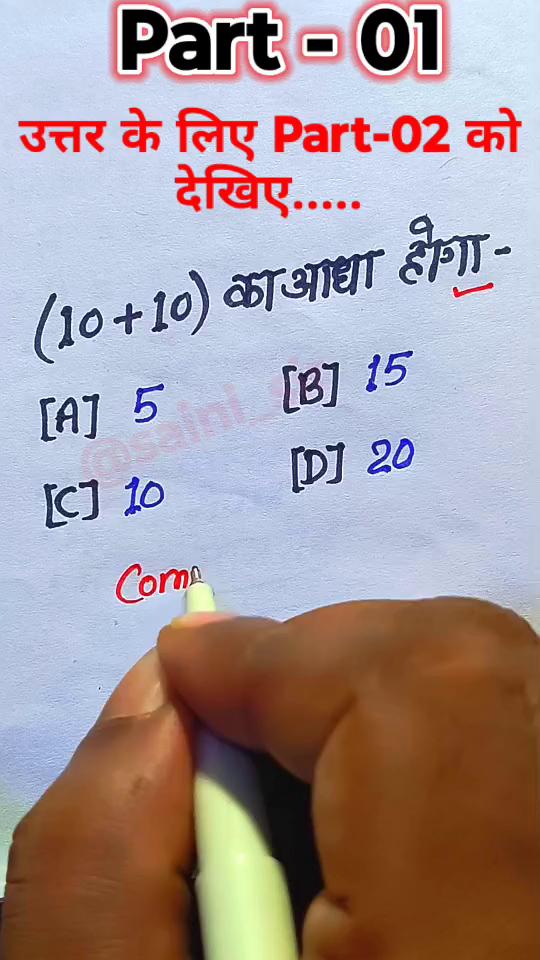 Part - 01
उत्तर के लिए Part-02 को
देखिए.....
(10+10) का आधा होगा -
[A] 5 [B] 15
[C] 10 [D] 20
@saini_s
Com